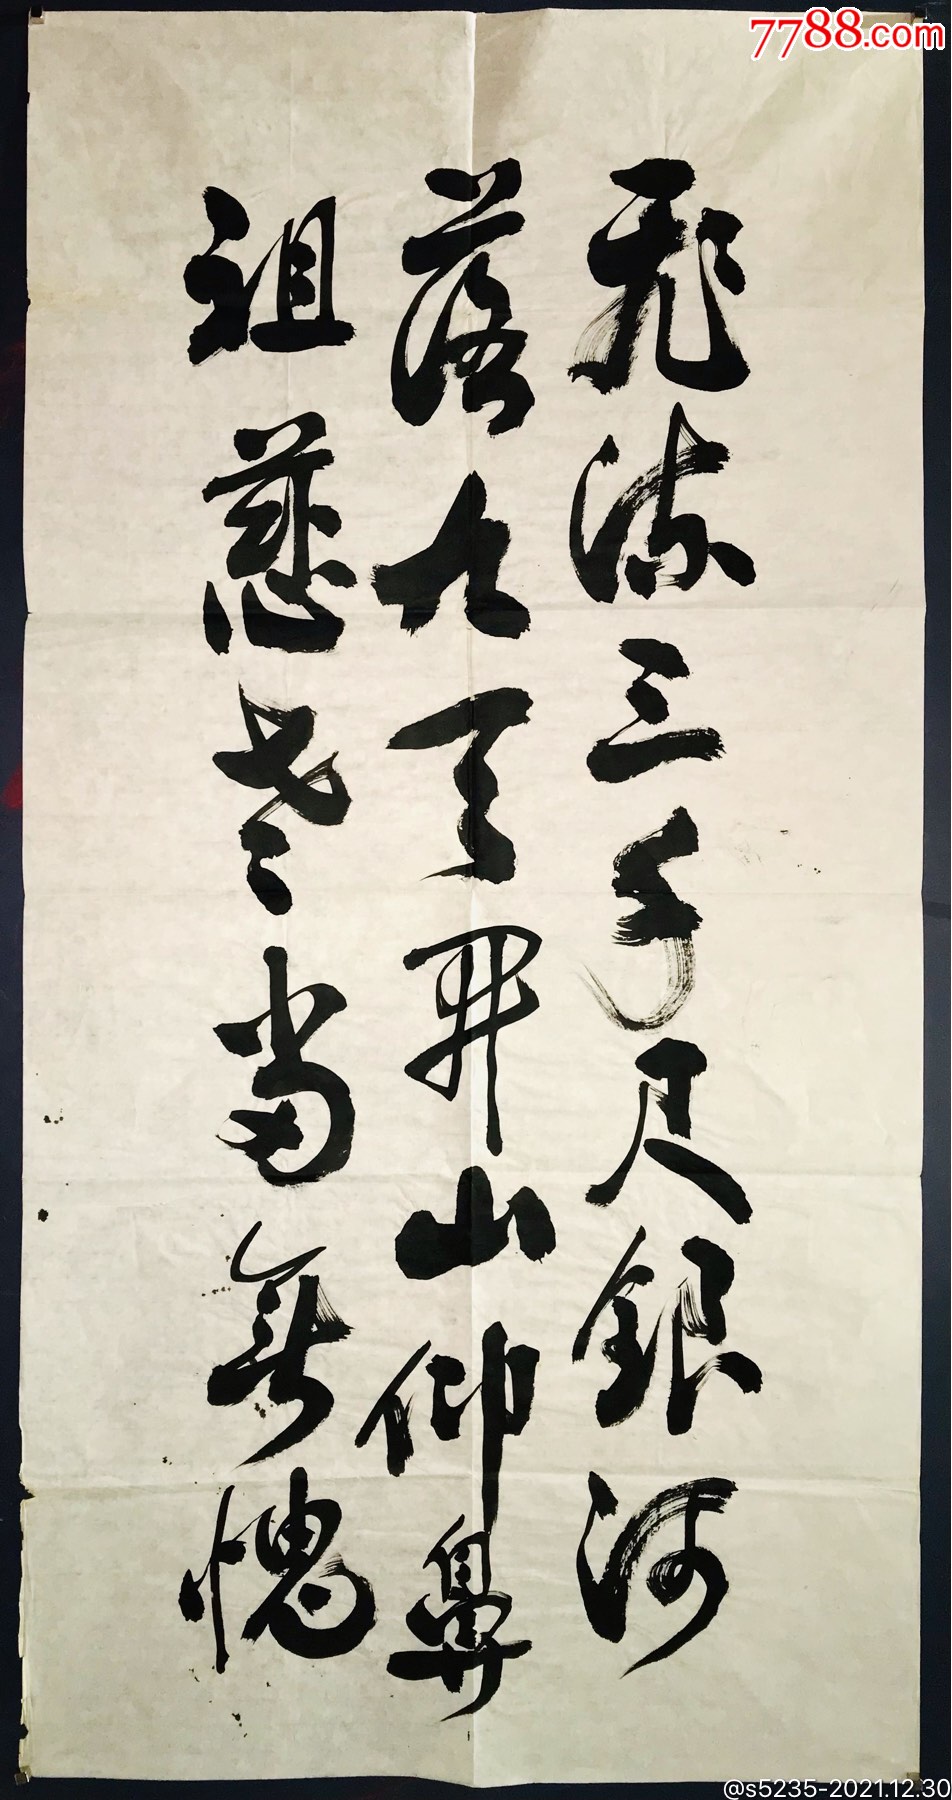 飛流三千尺銀河
落九天開山仰鼻
祖慈老當無愧
7788.com
@s5235-2021.12.30